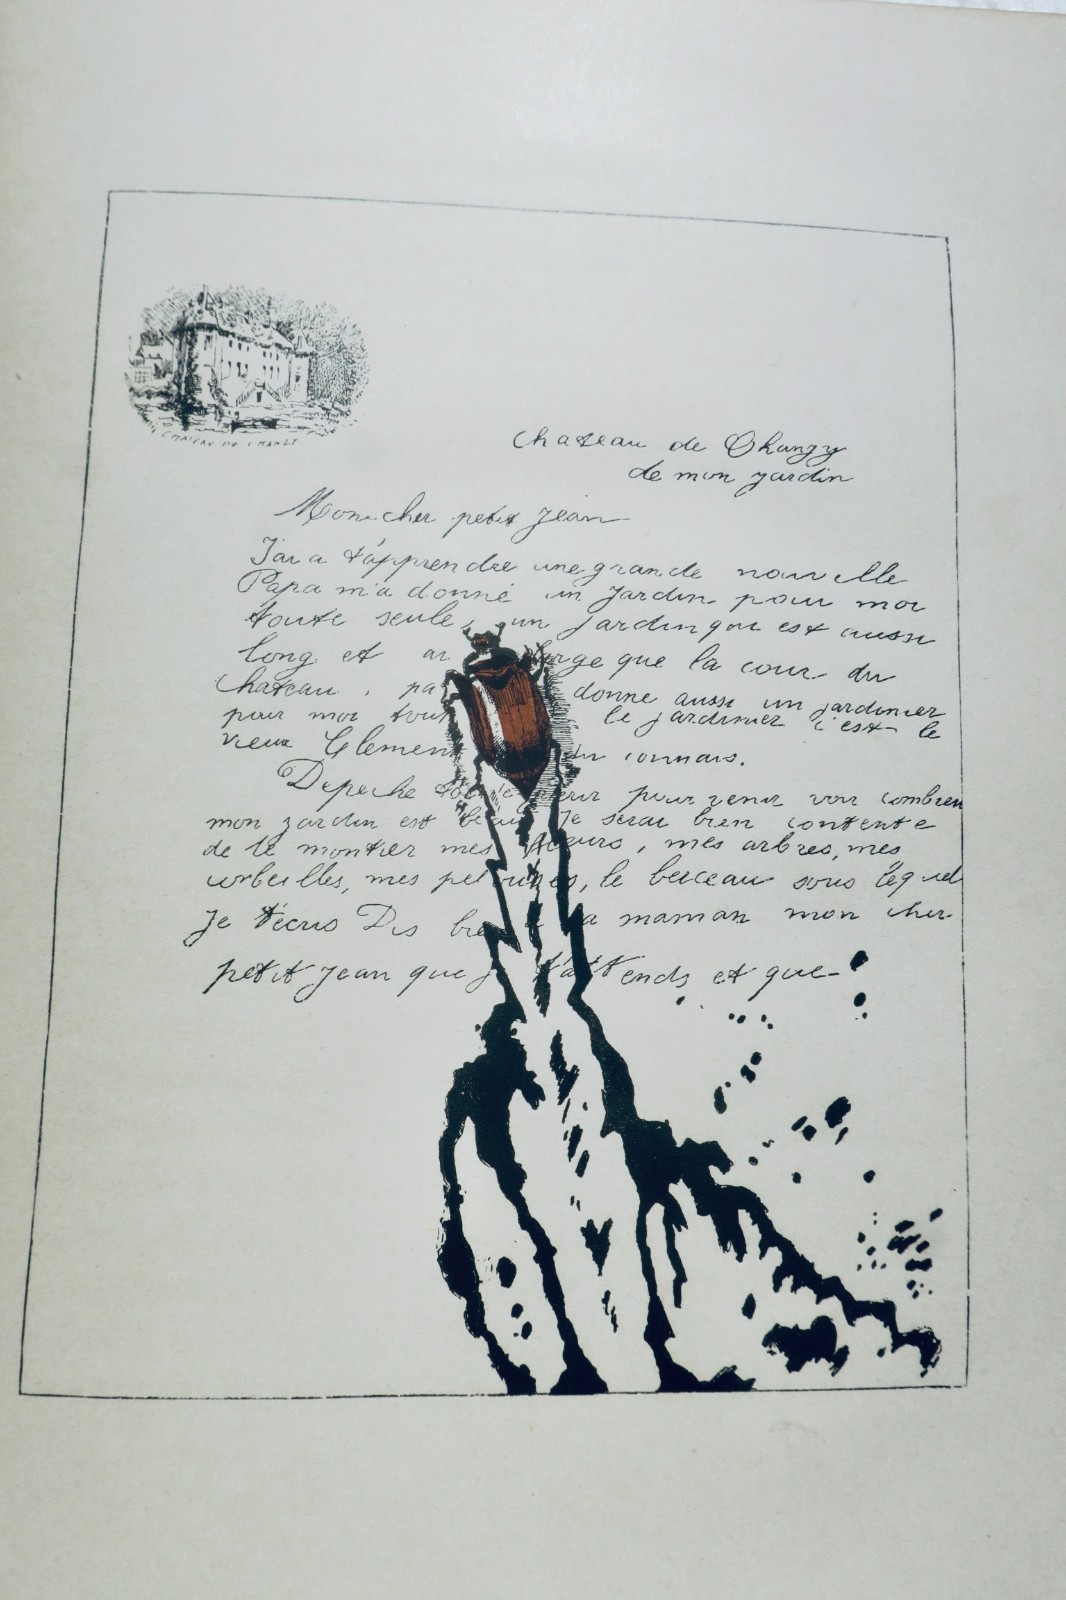 Chateau de Changy
de mon jardin
Mon cher petit Jean
J'ai a t'apprendre une grande nouvelle
Papa m'a donné un jardin pour moi
toute seule, un jardin qui est aussi
long et au large que la cour du
chateau, pa donne aussi un jardinier
pour moi tout le jardinier c'est le
vieux Clement tu connais.
Depeche pour venir voir combien
mon jardin est beau Je serai bien contente
de te montrer mes fleurs, mes arbres, mes
corbeilles, mes pelouses, le berceau sous lequel
Je t'écris Dis bie a maman mon cher
petit Jean que j t'attends et que